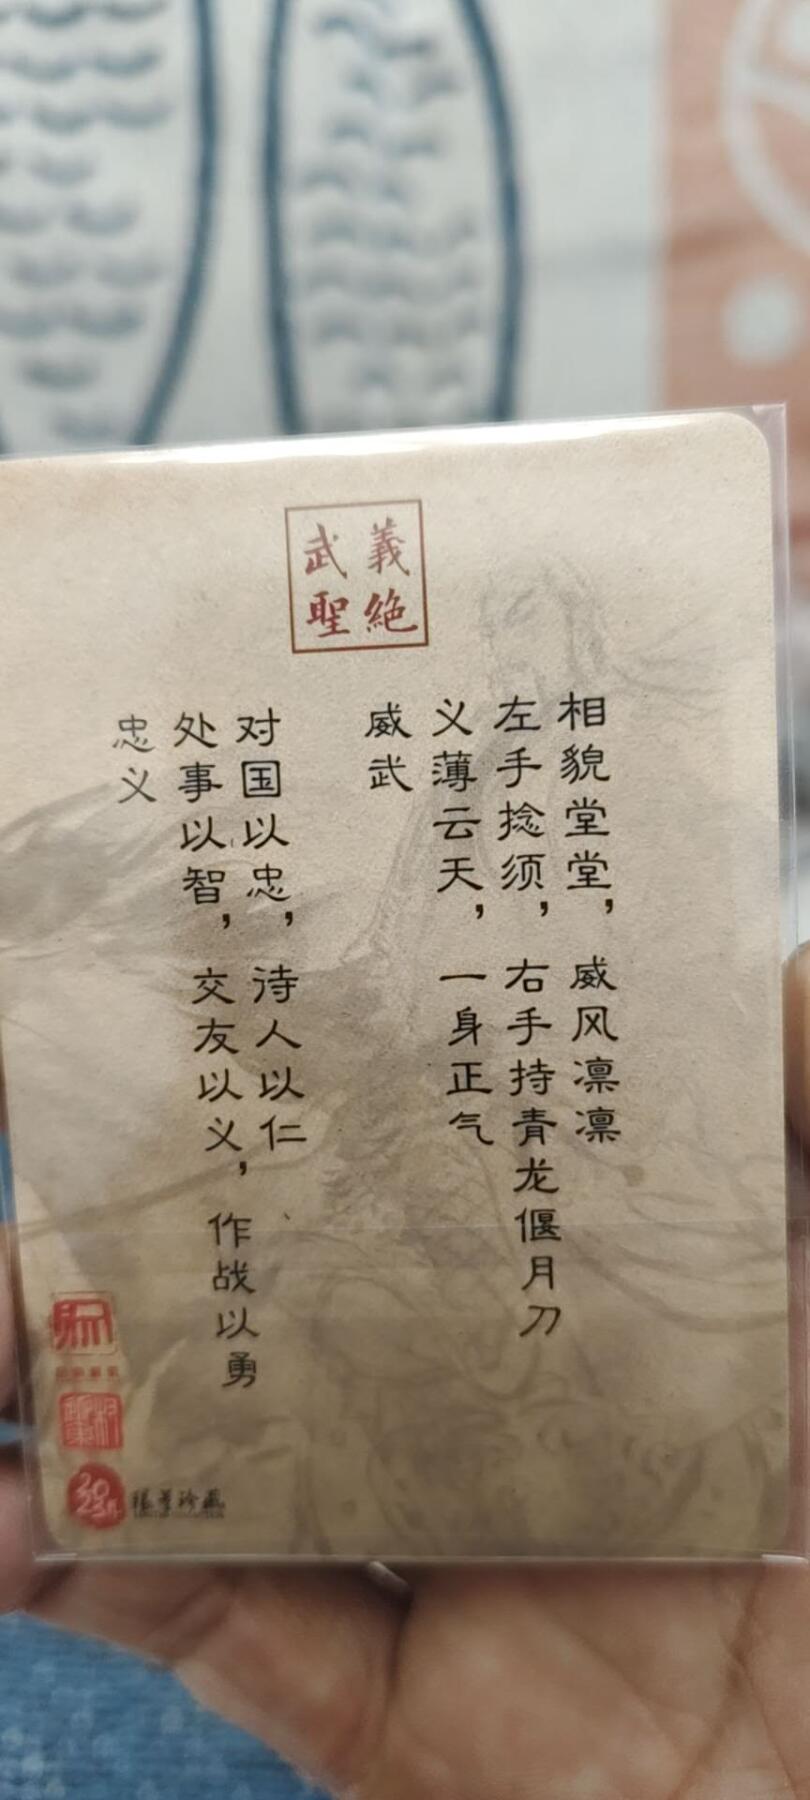 義絶
武聖
相貌堂堂，威风凛凛
左手捻须，右手持青龙偃月刀
义薄云天，一身正气
威武
对国以忠，待人以仁
处事以智，交友以义，作战以勇
忠义
珍藏